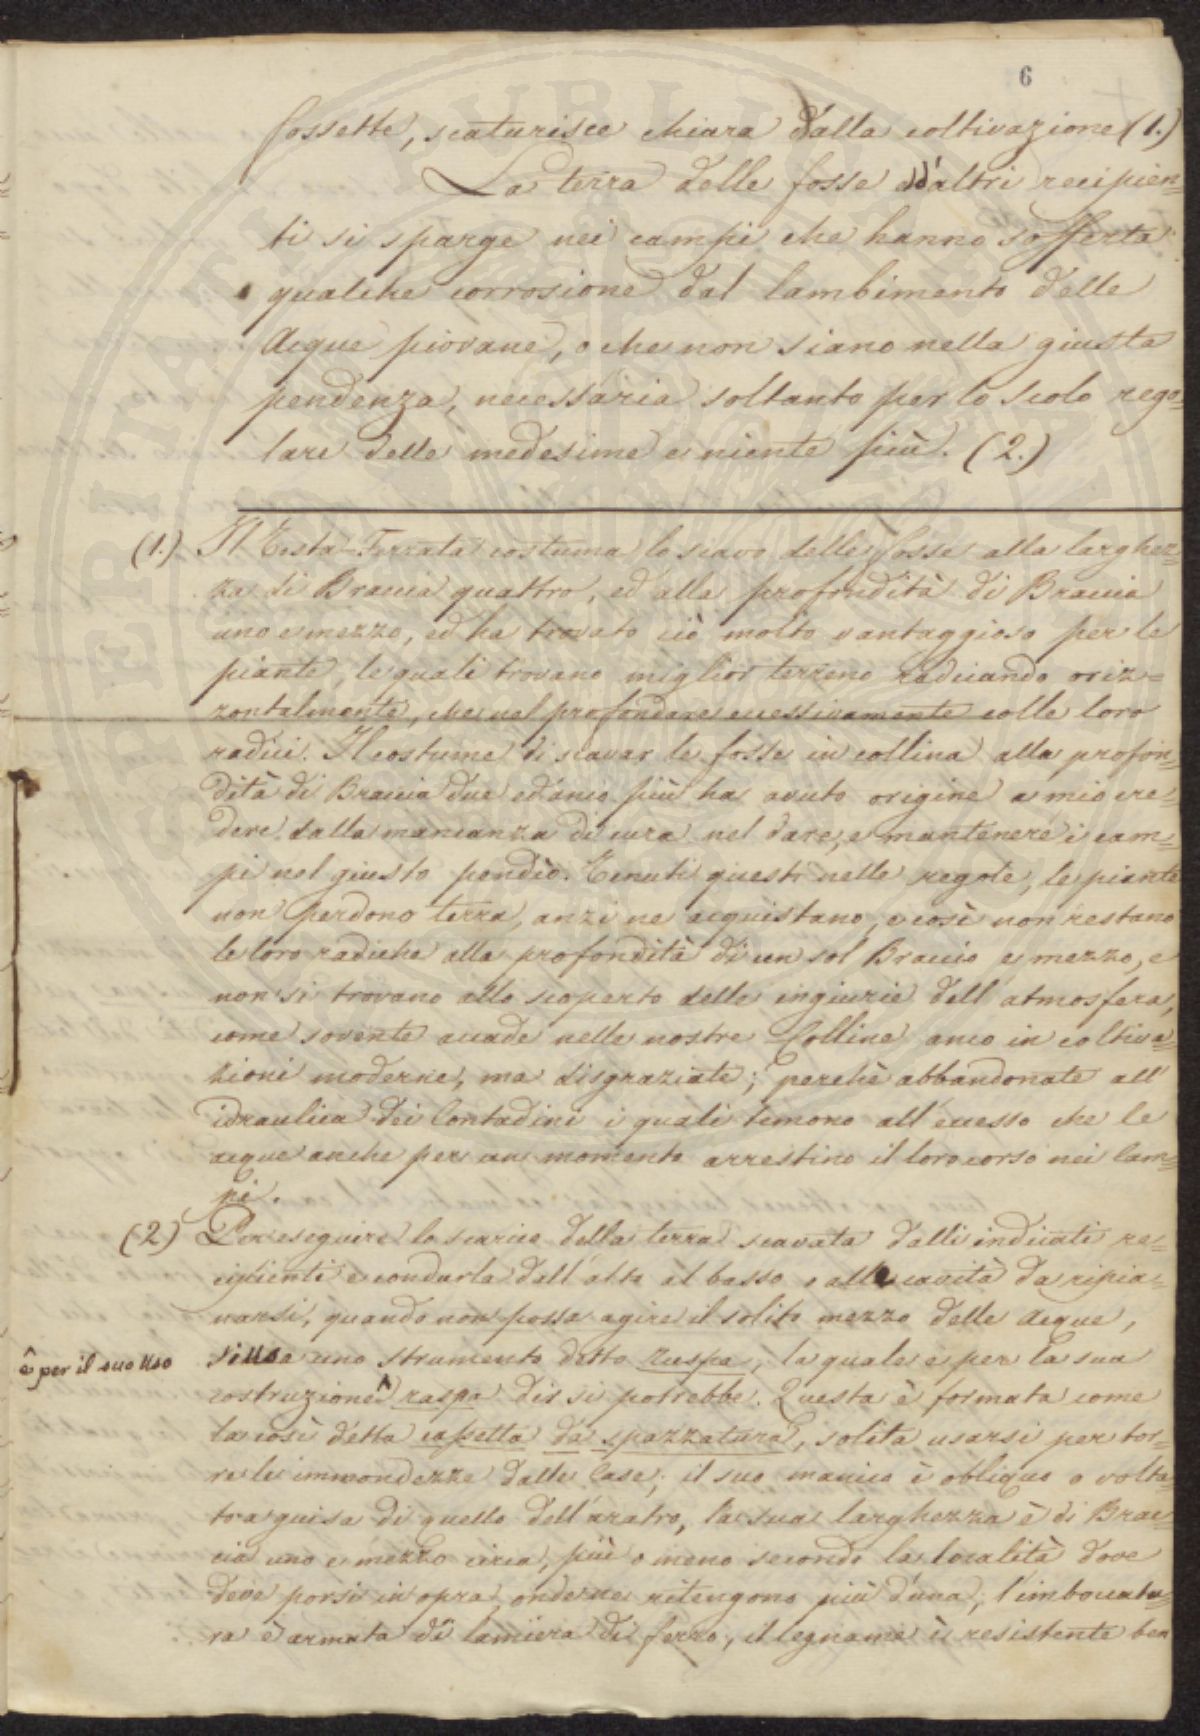 6
fossette, scaturisce chiara dalla coltivazione (1.)
La terra delle fosse ed'altri recipien=
ti si sparge nei campi che hanno sofferta
qualche corrosione dal lambimento delle
Acque piovane, o che non siano nella giusta
pendenza, necessaria soltanto per lo scolo rego=
lare delle medesime e niente più. (2.)
(1.) Il Testa-Ferrata costuma lo scavo delle fosse alla larghez=
za di Braccia quattro, ed alla profondità di Braccia
uno e mezzo, ed ha trovato ciò molto vantaggioso per le
piante, le quali trovano miglior terreno radicando oriz=
zontalmente, che nel profondare eccessivamente colle loro
radici. Il costume di scavar le fosse in collina alla profon=
dità di Braccia due ed'anco più ha avuto origine a mio cre=
dere dalla mancanza di cura nel dare, e mantenere i cam=
pi nel giusto pendìo. Tenuti questi nelle regole, le piante
non perdono terra, anzi ne acquistano, e così non restano
le loro radiche alla profondità di un sol Braccio e mezzo, e
non si trovano allo scoperto delle ingiurie dell'atmosfera,
come sovente accade nelle nostre Colline anco in coltiva=
zioni moderne, ma disgraziate; perchè abbandonate all'
idraulica dei Contadini i quali temono all'eccesso che le
acque anche per un momento arrestino il loro corso nei Cam=
pi.
(2.) Per eseguire lo scarico della terra scavata dalli indicati re=
cipienti e condurla dall'alto al basso o alle cavità da ripia=
narsi, quando non possa agire il solito mezzo delle Acque,
si usa uno strumento detto ruspa, la quale e per la sua
ê per il suo uso
costruzione ^ raspa dir si potrebbe. Questa è formata come
la così detta cassetta da spazzatura, solita usarsi per tor=
re le immondezze dalle Case; il suo manico è obliquo o volta=
to a guisa di quello dell'aratro, la sua larghezza è di Brac=
cia uno e mezzo circa, più o meno secondo la località dove
deve porsi in opra, onde ne ritengono più d'una; l'imboccatu=
ra è armata di lamiera di ferro, il legname è resistente ben